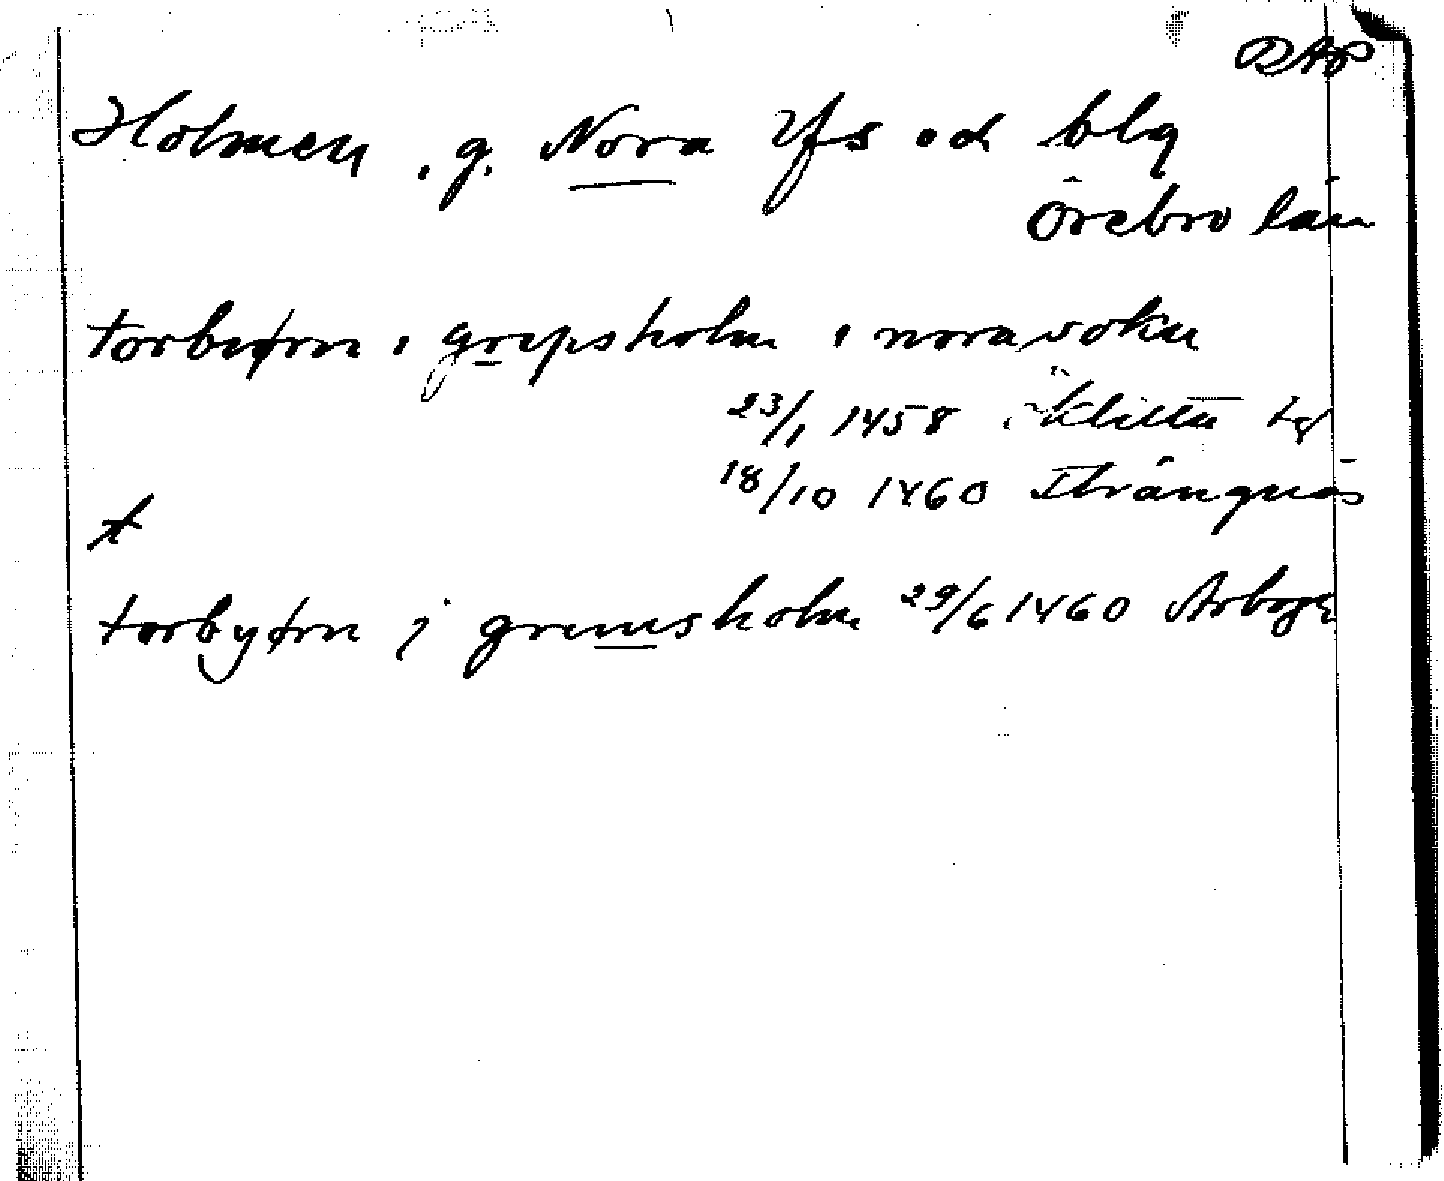 RAP
Holmen, g. Nora lfs och blg
Örebro län
torbiørn i gripsholm i nora sokn
23/1 1458
18/10 1460 Strängnäs
torbyørn j gremsholm 29/6 1460 Arboga